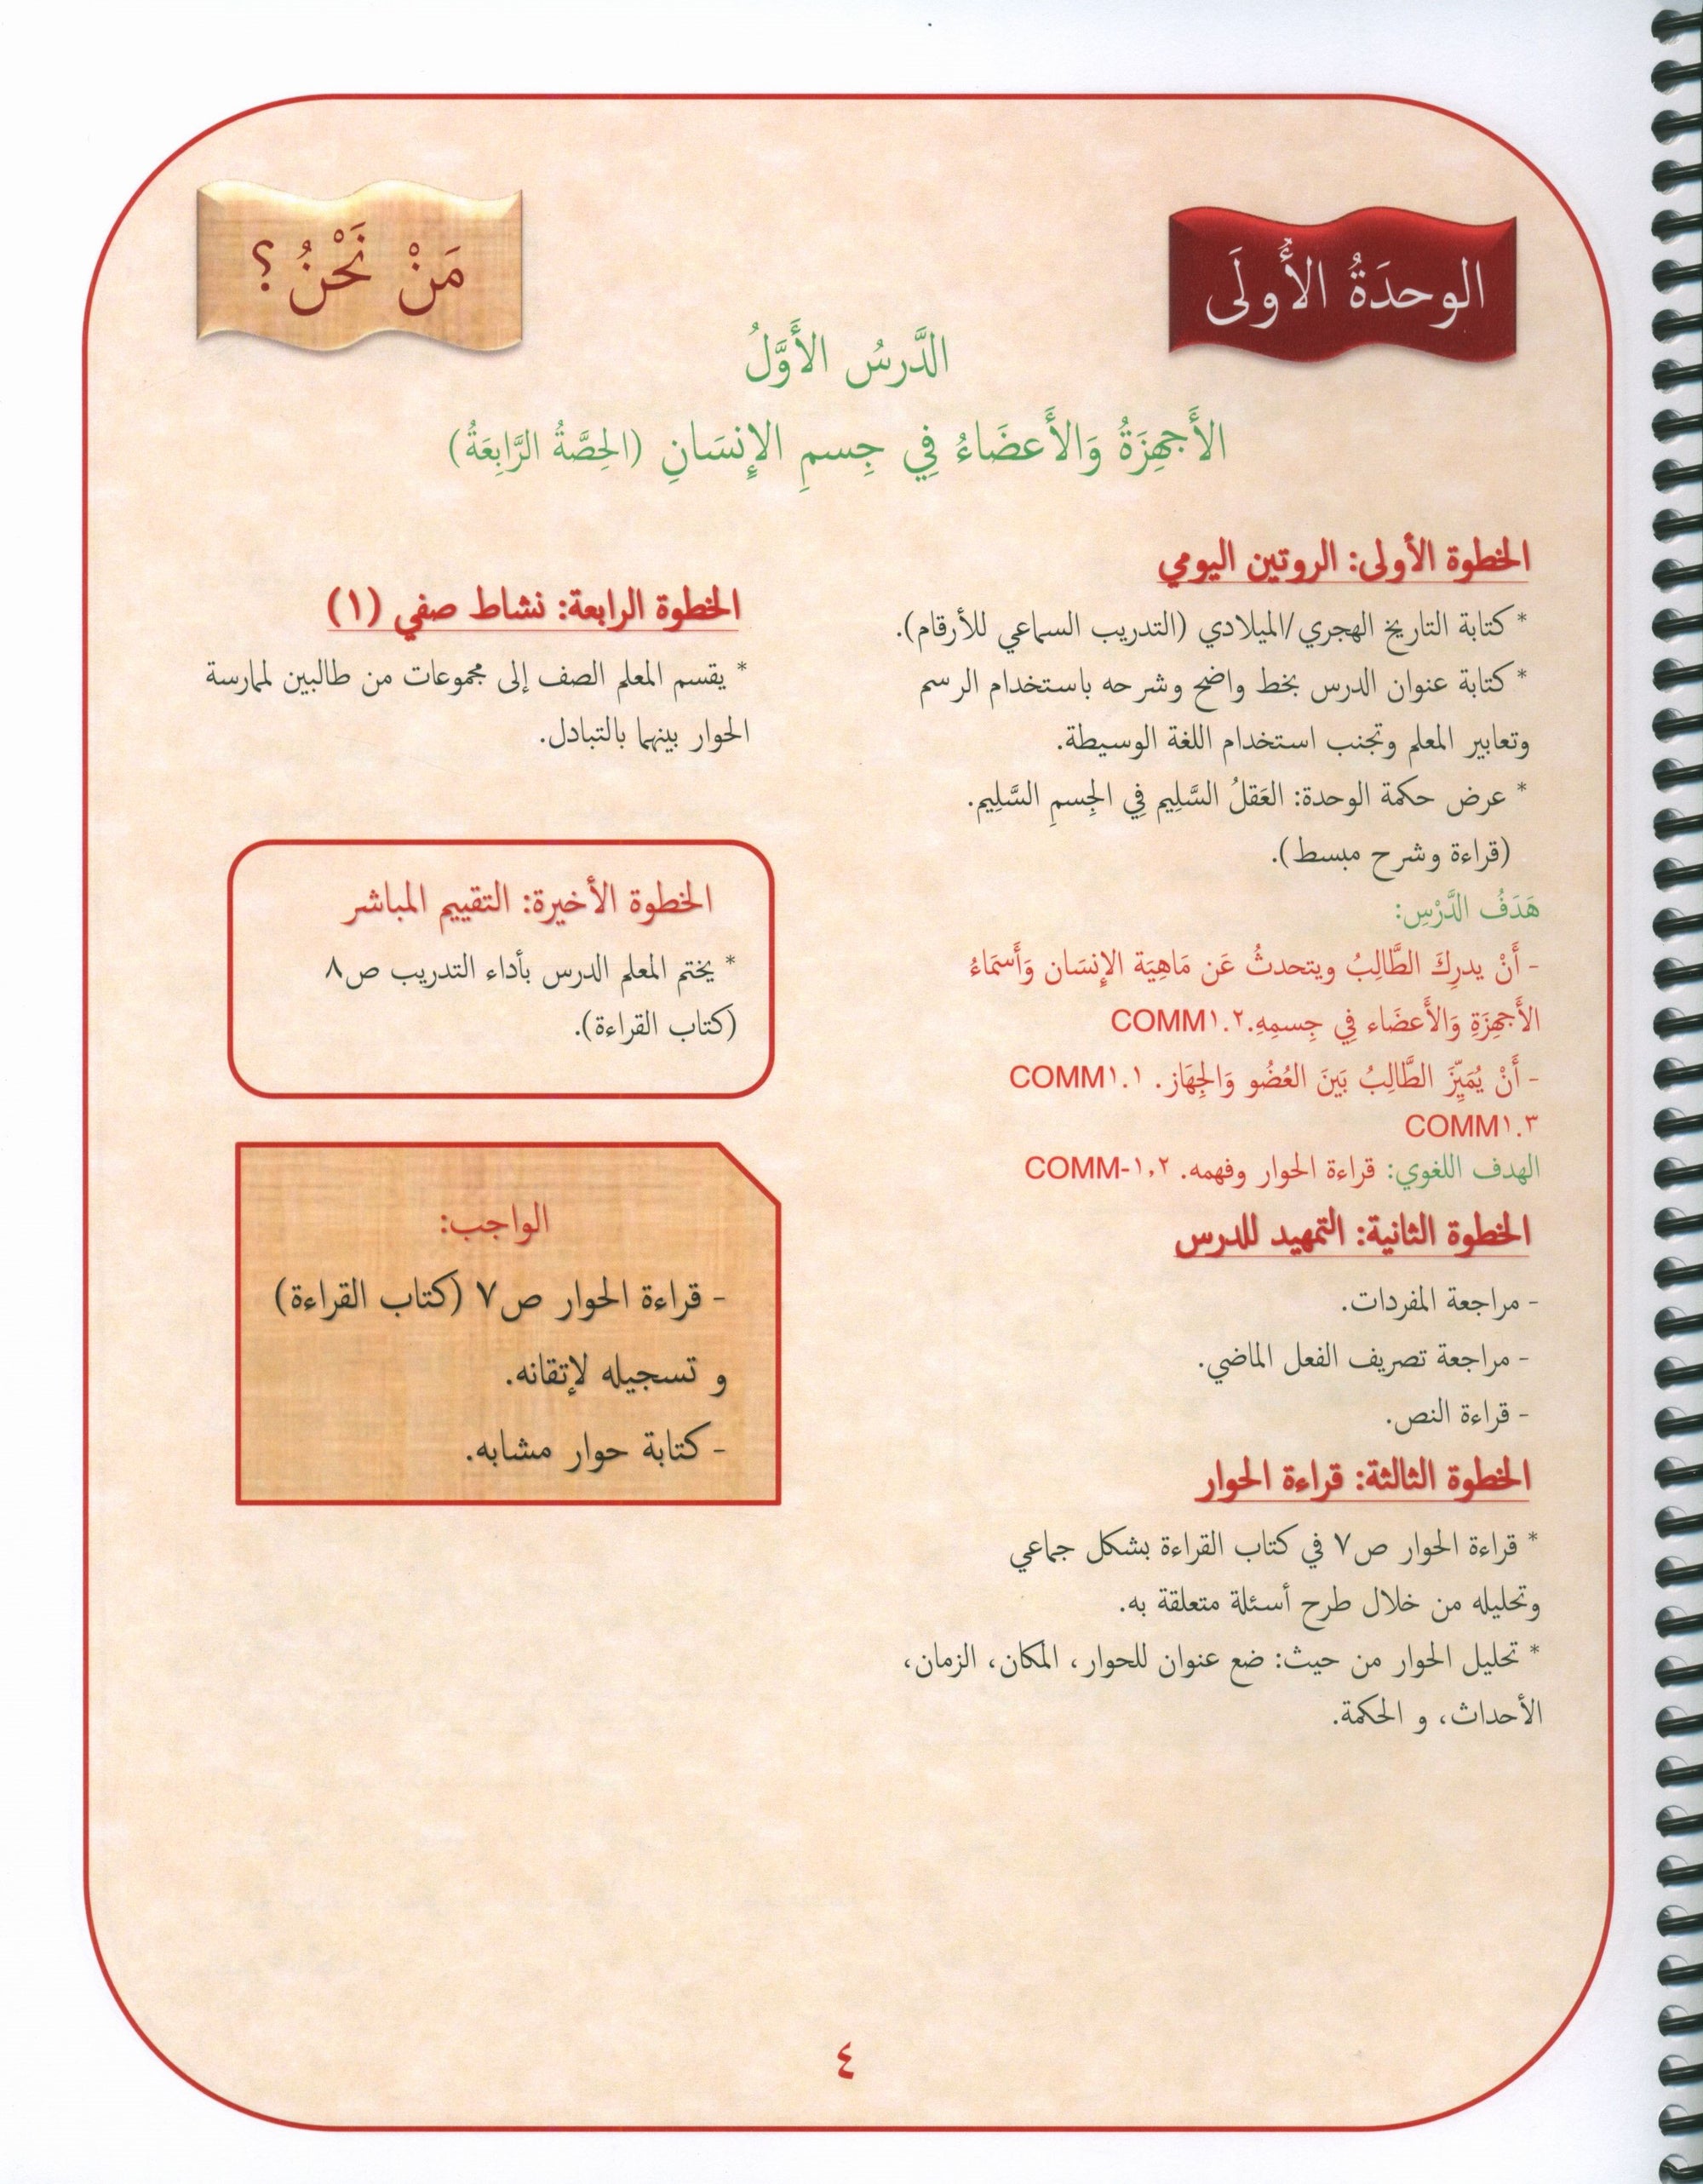 الوحدَةُ الأُولَى
مَنْ نَحْنُ؟
الدَّرسُ الأَوَّلُ
الأَجهِزَةُ وَالأَعضَاءُ فِي جِسمِ الإِنسَانِ (الحِصَّةُ الرَّابِعَةُ)
الخطوة الأولى: الروتين اليومي
* كتابة التاريخ الهجري/الميلادي (التدريب السماعي للأرقام).
* كتابة عنوان الدرس بخط واضح وشرحه باستخدام الرسم
وتعابير المعلم وتجنب استخدام اللغة الوسيطة.
* عرض حكمة الوحدة: العَقلُ السَّلِيم فِي الجِسمِ السَّلِيم.
(قراءة وشرح مبسط).
هَدَفُ الدَّرْسِ:
- أَنْ يدرِكَ الطَّالِبُ ويتحدثُ عَن مَاهِيَة الإِنسَان وَأَسمَاءُ
الأَجهِزَةِ وَالأَعضَاء فِي جِسمِهِ.COMM١.٢
- أَنْ يُمَيِّزَ الطَّالِبُ بَينَ العُضُو وَالجِهَاز. COMM١.١
COMM١.٣
الهدف اللغوي: قراءة الحوار وفهمه. COMM-١,٢
الخطوة الثانية: التمهيد للدرس
- مراجعة المفردات.
- مراجعة تصريف الفعل الماضي.
- قراءة النص.
الخطوة الثالثة: قراءة الحوار
* قراءة الحوار ص٧ في كتاب القراءة بشكل جماعي
وتحليله من خلال طرح أسئلة متعلقة به.
* تحليل الحوار من حيث: ضع عنوان للحوار، المكان، الزمان،
الأحداث، و الحكمة.
الخطوة الرابعة: نشاط صفي (١)
* يقسم المعلم الصف إلى مجموعات من طالبين لممارسة
الحوار بينهما بالتبادل.
الخطوة الأخيرة: التقييم المباشر
* يختم المعلم الدرس بأداء التدريب ص٨
(كتاب القراءة).
الواجب:
- قراءة الحوار ص٧ (كتاب القراءة)
و تسجيله لإتقانه.
- كتابة حوار مشابه.
٤